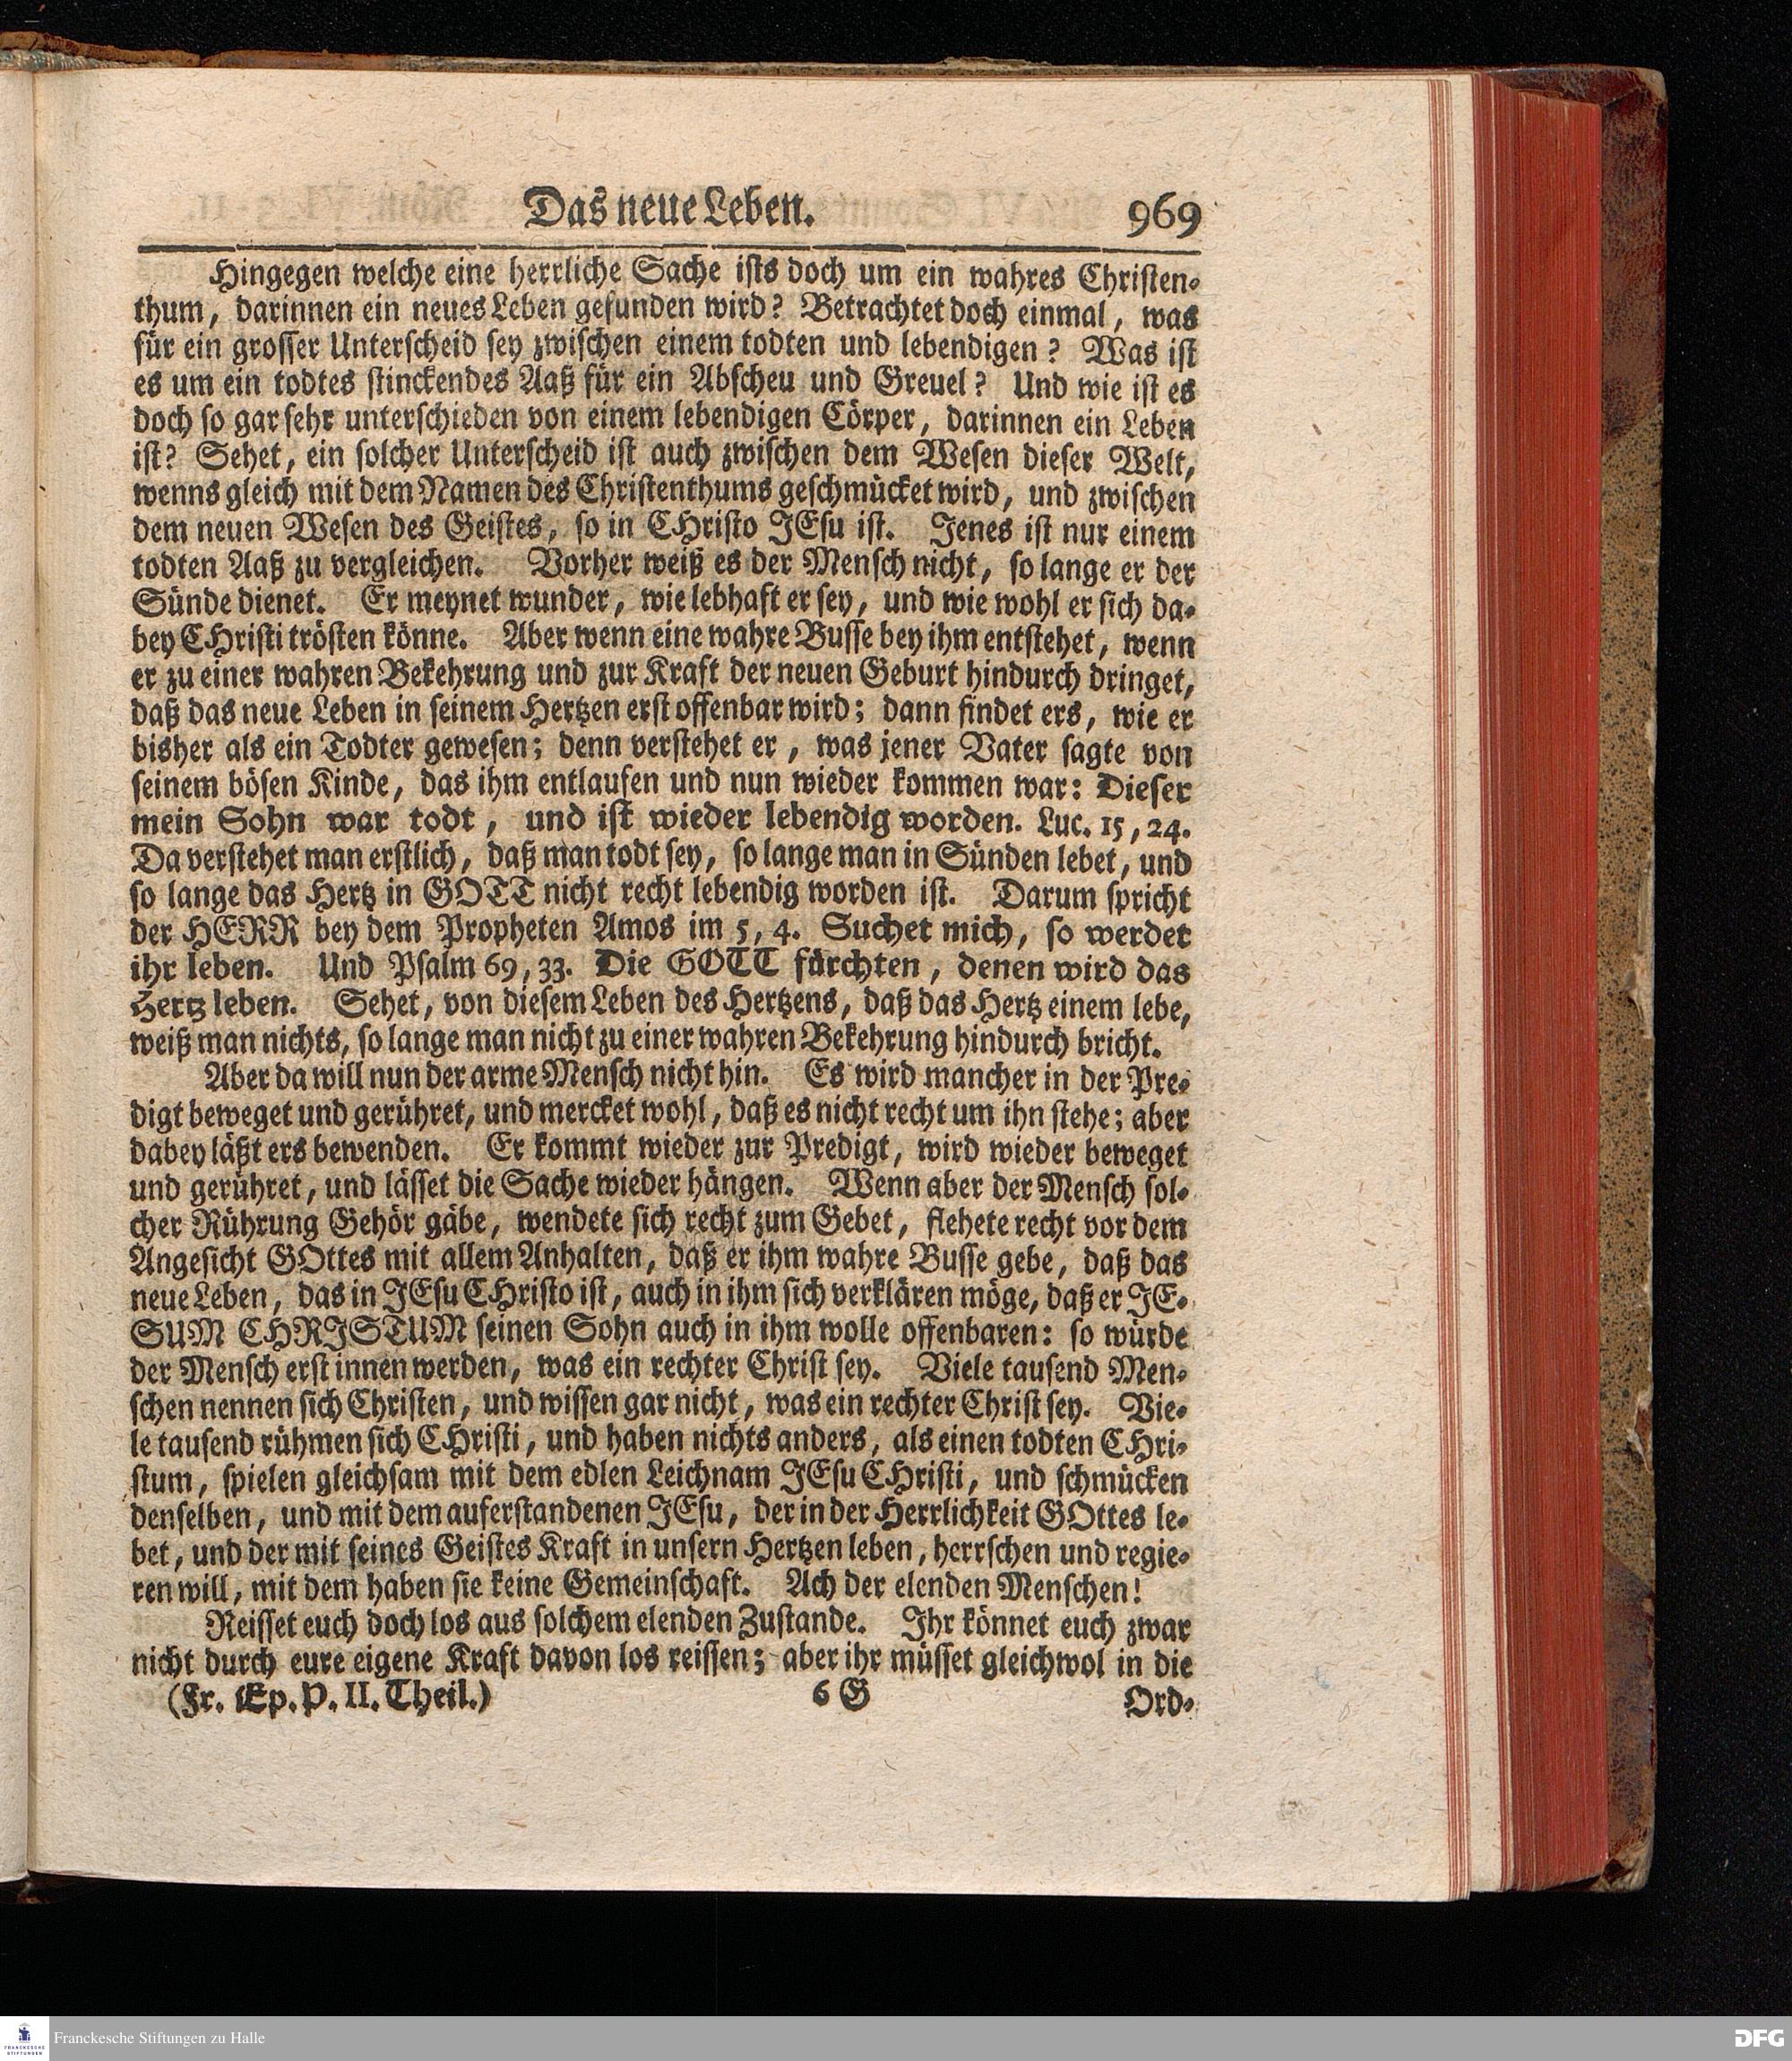 Das neue Leben. 969
Hingegen welche eine herrliche Sache ists doch um ein wahres Christen-
thum, darinnen ein neues Leben gefunden wird? Betrachtet doch einmal, was
für ein grosser Unterscheid sey zwischen einem todten und lebendigen? Was ist
es um ein todtes stinckendes Aaß für ein Abscheu und Greuel? Und wie ist es
doch so gar sehr unterschieden von einem lebendigen Cörper, darinnen ein Leben
ist? Sehet, ein solcher Unterscheid ist auch zwischen dem Wesen dieser Welt,
wenns gleich mit dem Namen des Christenthums geschmücket wird, und zwischen
dem neuen Wesen des Geistes, so in CHristo JEsu ist. Jenes ist nur einem
todten Aaß zu vergleichen. Vorher weiß es der Mensch nicht, so lange er der
Sünde dienet. Er meynet wunder, wie lebhaft er sey, und wie wohl er sich da-
bey CHristi trösten könne. Aber wenn eine wahre Busse bey ihm entstehet, wenn
er zu einer wahren Bekehrung und zur Kraft der neuen Geburt hindurch dringet,
daß das neue Leben in seinem Hertzen erst offenbar wird; dann findet ers, wie er
bisher als ein Todter gewesen; denn verstehet er, was jener Vater sagte von
seinem bösen Kinde, das ihm entlaufen und nun wieder kommen war: Dieser
mein Sohn war todt, und ist wieder lebendig worden. Luc. 15, 24.
Da verstehet man erstlich, daß man todt sey, so lange man in Sünden lebet, und
so lange das Hertz in GOTT nicht recht lebendig worden ist. Darum spricht
der HERR bey dem Propheten Amos im 5, 4. Suchet mich, so werdet
ihr leben. Und Psalm 69, 33. Die GOTT fürchten, denen wird das
Hertz leben. Sehet, von diesem Leben des Hertzens, daß das Hertz einem lebe,
weiß man nichts, so lange man nicht zu einer wahren Bekehrung hindurch bricht.
Aber da will nun der arme Mensch nicht hin. Es wird mancher in der Pre-
digt beweget und gerühret, und mercket wohl, daß es nicht recht um ihn stehe; aber
dabey läßt ers bewenden. Er kommt wieder zur Predigt, wird wieder beweget
und gerühret, und lässet die Sache wieder hängen. Wenn aber der Mensch sol-
cher Rührung Gehör gäbe, wendete sich recht zum Gebet, flehete recht vor dem
Angesicht GOttes mit allem Anhalten, daß er ihm wahre Busse gebe, daß das
neue Leben, das in JEsu CHristo ist, auch in ihm sich verklären möge, daß er JE-
SUM CHRJSTUM seinen Sohn auch in ihm wolle offenbaren: so würde
der Mensch erst innen werden, was ein rechter Christ sey. Viele tausend Men-
schen nennen sich Christen, und wissen gar nicht, was ein rechter Christ sey. Vie-
le tausend rühmen sich CHristi, und haben nichts anders, als einen todten CHri-
stum, spielen gleichsam mit dem edlen Leichnam JEsu CHristi, und schmücken
denselben, und mit dem auferstandenen JEsu, der in der Herrlichkeit GOttes le-
bet, und der mit seines Geistes Kraft in unsern Hertzen leben, herrschen und regie-
ren will, mit dem haben sie keine Gemeinschaft. Ach der elenden Menschen!
Reisset euch doch los aus solchem elenden Zustande. Ihr könnet euch zwar
nicht durch eure eigene Kraft davon los reissen; aber ihr müsset gleichwol in die
(Fr. Ep. P. II. Theil.) 6 G Ord-
Franckesche Stiftungen zu Halle
FRANCKESCHE
STIFTUNGEN
DFG